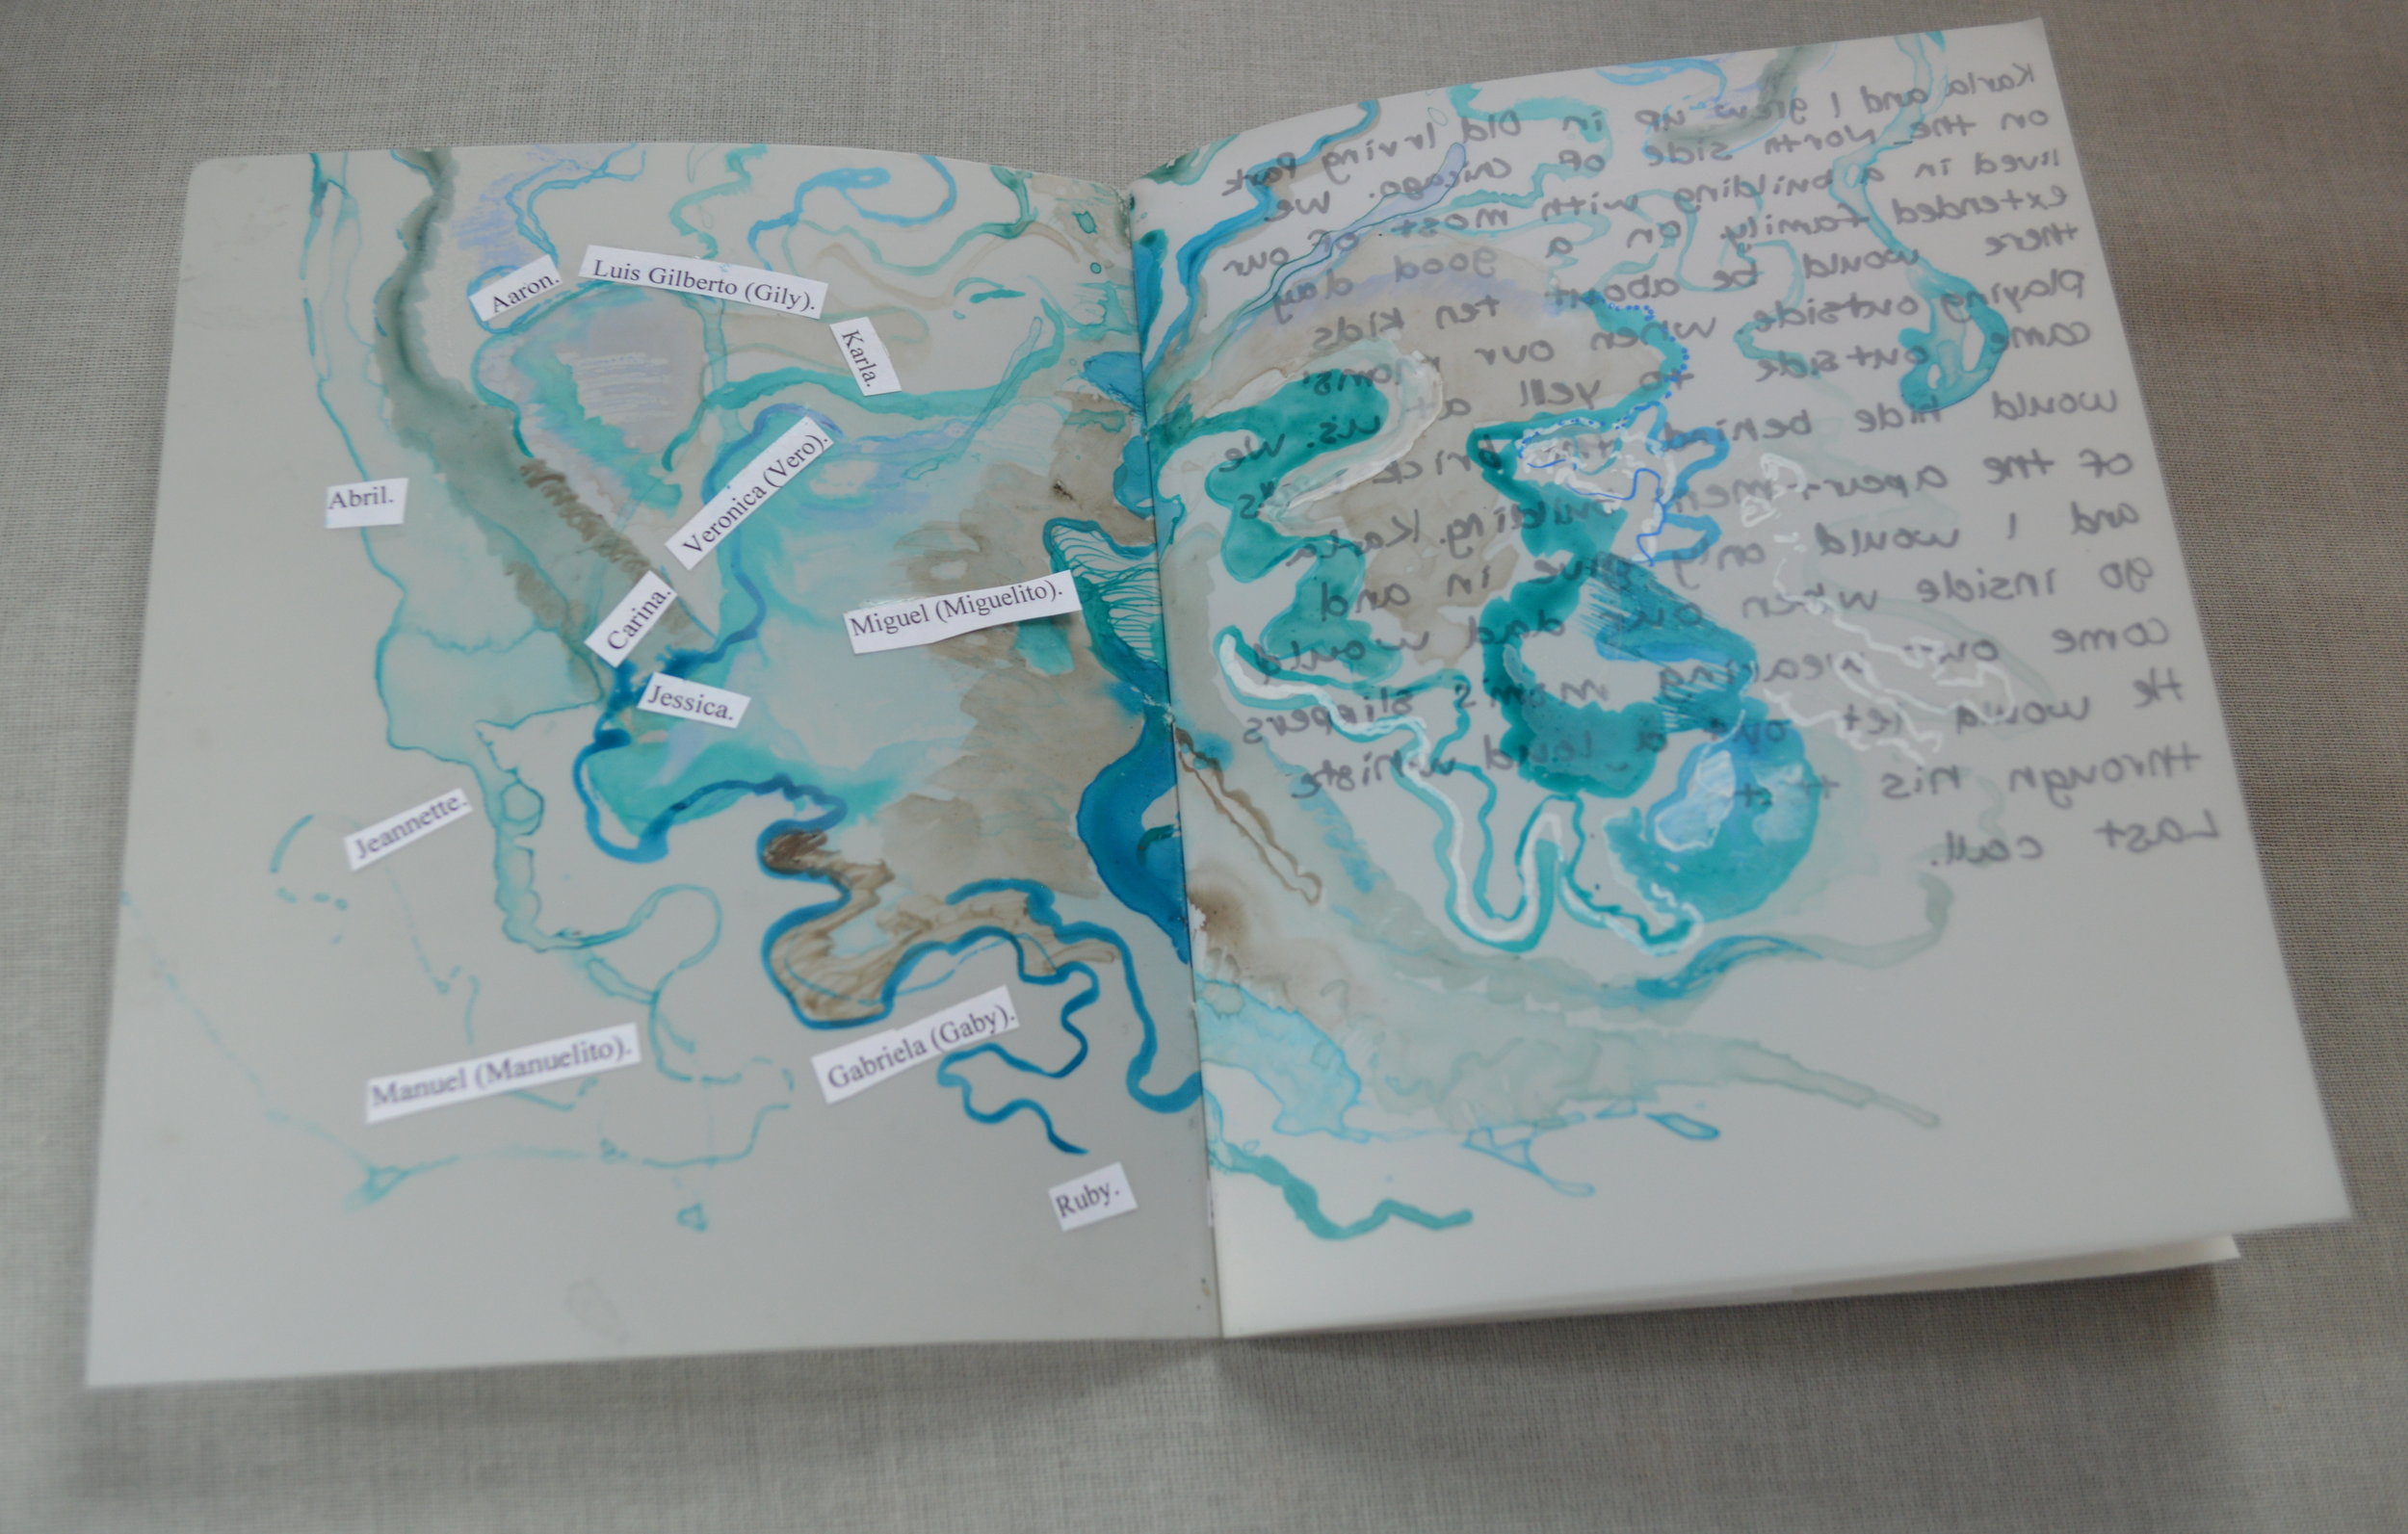 Aaron.
Luis Gilberto (Gily).
Karla.
Abril.
Veronica (Vero).
Carina.
Miguel (Miguelito).
Jessica.
Jeannette.
Manuel (Manuelito).
Gabriela (Gaby).
Ruby.
Karla and I grew up in Old Irving Park
on the North side of Chicago. We
lived in a building with most of our
extended family. On a good day
there would be about ten kids
playing outside. When our moms
came outside to yell at us. We
would hide behind the brick
of the apartment building. Karla
and I would only give in and
go inside when our dad would
come out wearing mom's slippers
He would let out a loud whistle
through his
Last call.